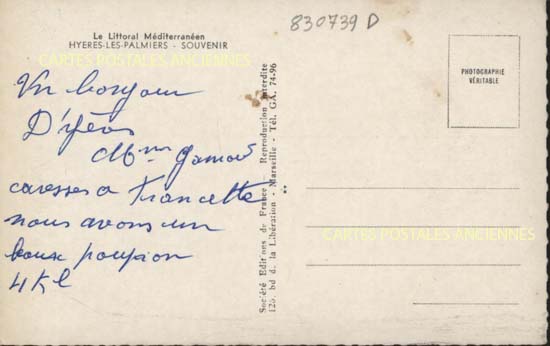 830739 D
Le Littoral Méditerranéen
HYERES-LES-PALMIERS - SOUVENIR
CARTES POSTALES ANCIENNES
Un bonjour
D'yères
Mme
caresses a Francette
nous avons un
beau poupon
4 Kl
Société Editions de France — Reproduction interdite
125, bd de la Libération - Marseille - Tél. GA. 74-96
PHOTOGRAPHIE
VÉRITABLE
CARTES POSTALES ANCIENNES